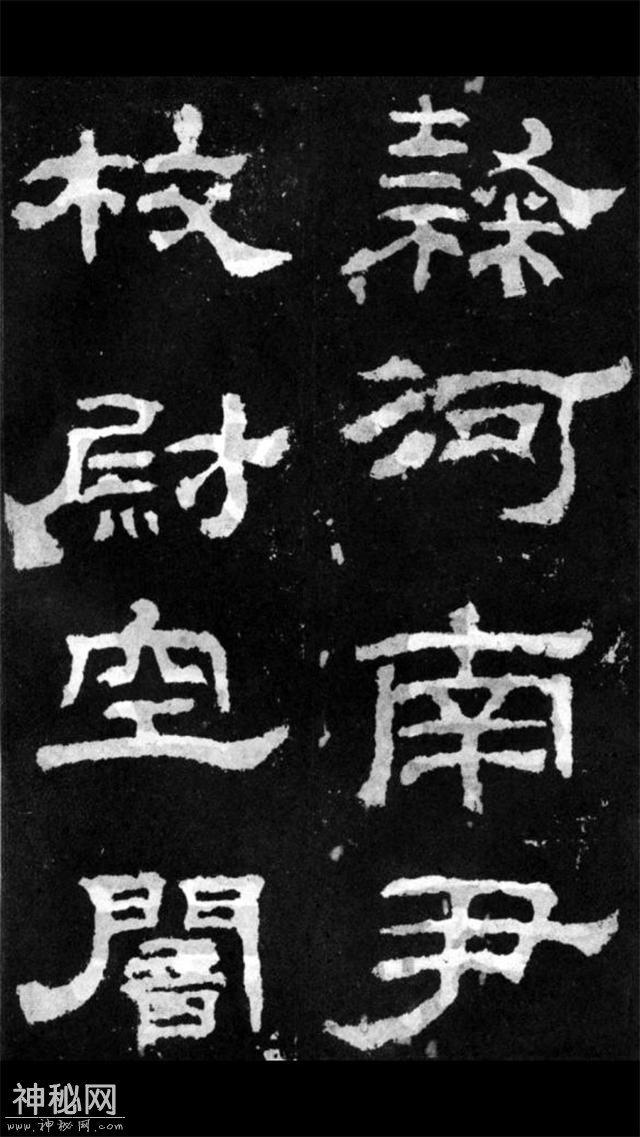 隸河南尹
校尉空闇
神秘网
www.神秘网.com